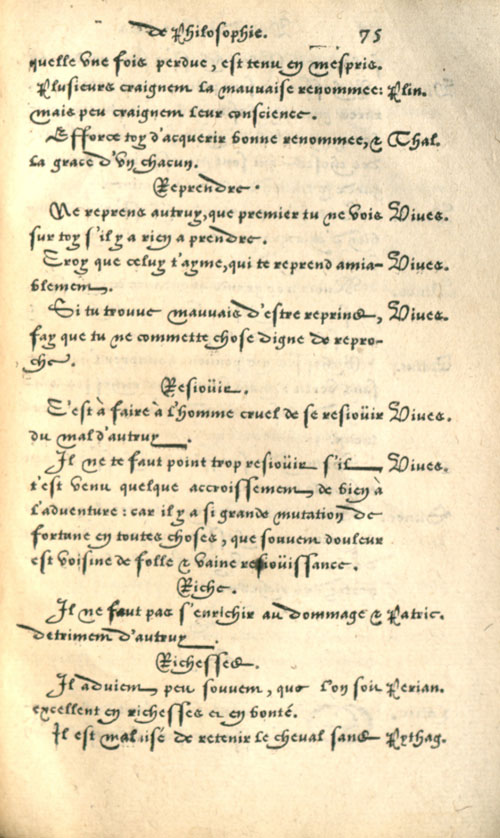 de Philosophie. 75
quelle vne fois perdue, est tenu en mespris.
Plusieurs craignent la mauuaise renommee: Plin.
mais peu craignent leur conscience.
Efforce toy d'acquerir bonne renommee, & Thal.
la grace d'vn chacun.
Reprendre.
Ne reprens autruy, que premier tu ne vois Viues.
sur toy s'il y a rien a prendre.
Croy que celuy t'ayme, qui te reprend amia- Viues.
blement.
Si tu trouue mauuais d'estre reprins, Viues.
fay que tu ne commette chose digne de repro-
che.
Resioüir.
C'est à faire à l'homme cruel de se resioüir Viues.
du mal d'autruy.
Il ne te faut point trop resioüir s'il Viues.
t'est venu quelque accroissement de bien à
l'aduenture: car il y a si grande mutation de
fortune en toutes choses, que souuent douleur
est voisine de folle & vaine resioüissance.
Riche.
Il ne faut pas s'enrichir au dommage & Patric.
detriment d'autruy.
Richesses.
Il aduient peu souuent, que l'on soit Perian.
excellent en richesses et en bonté.
Il est mal aisé de retenir le cheval sans Pythag.